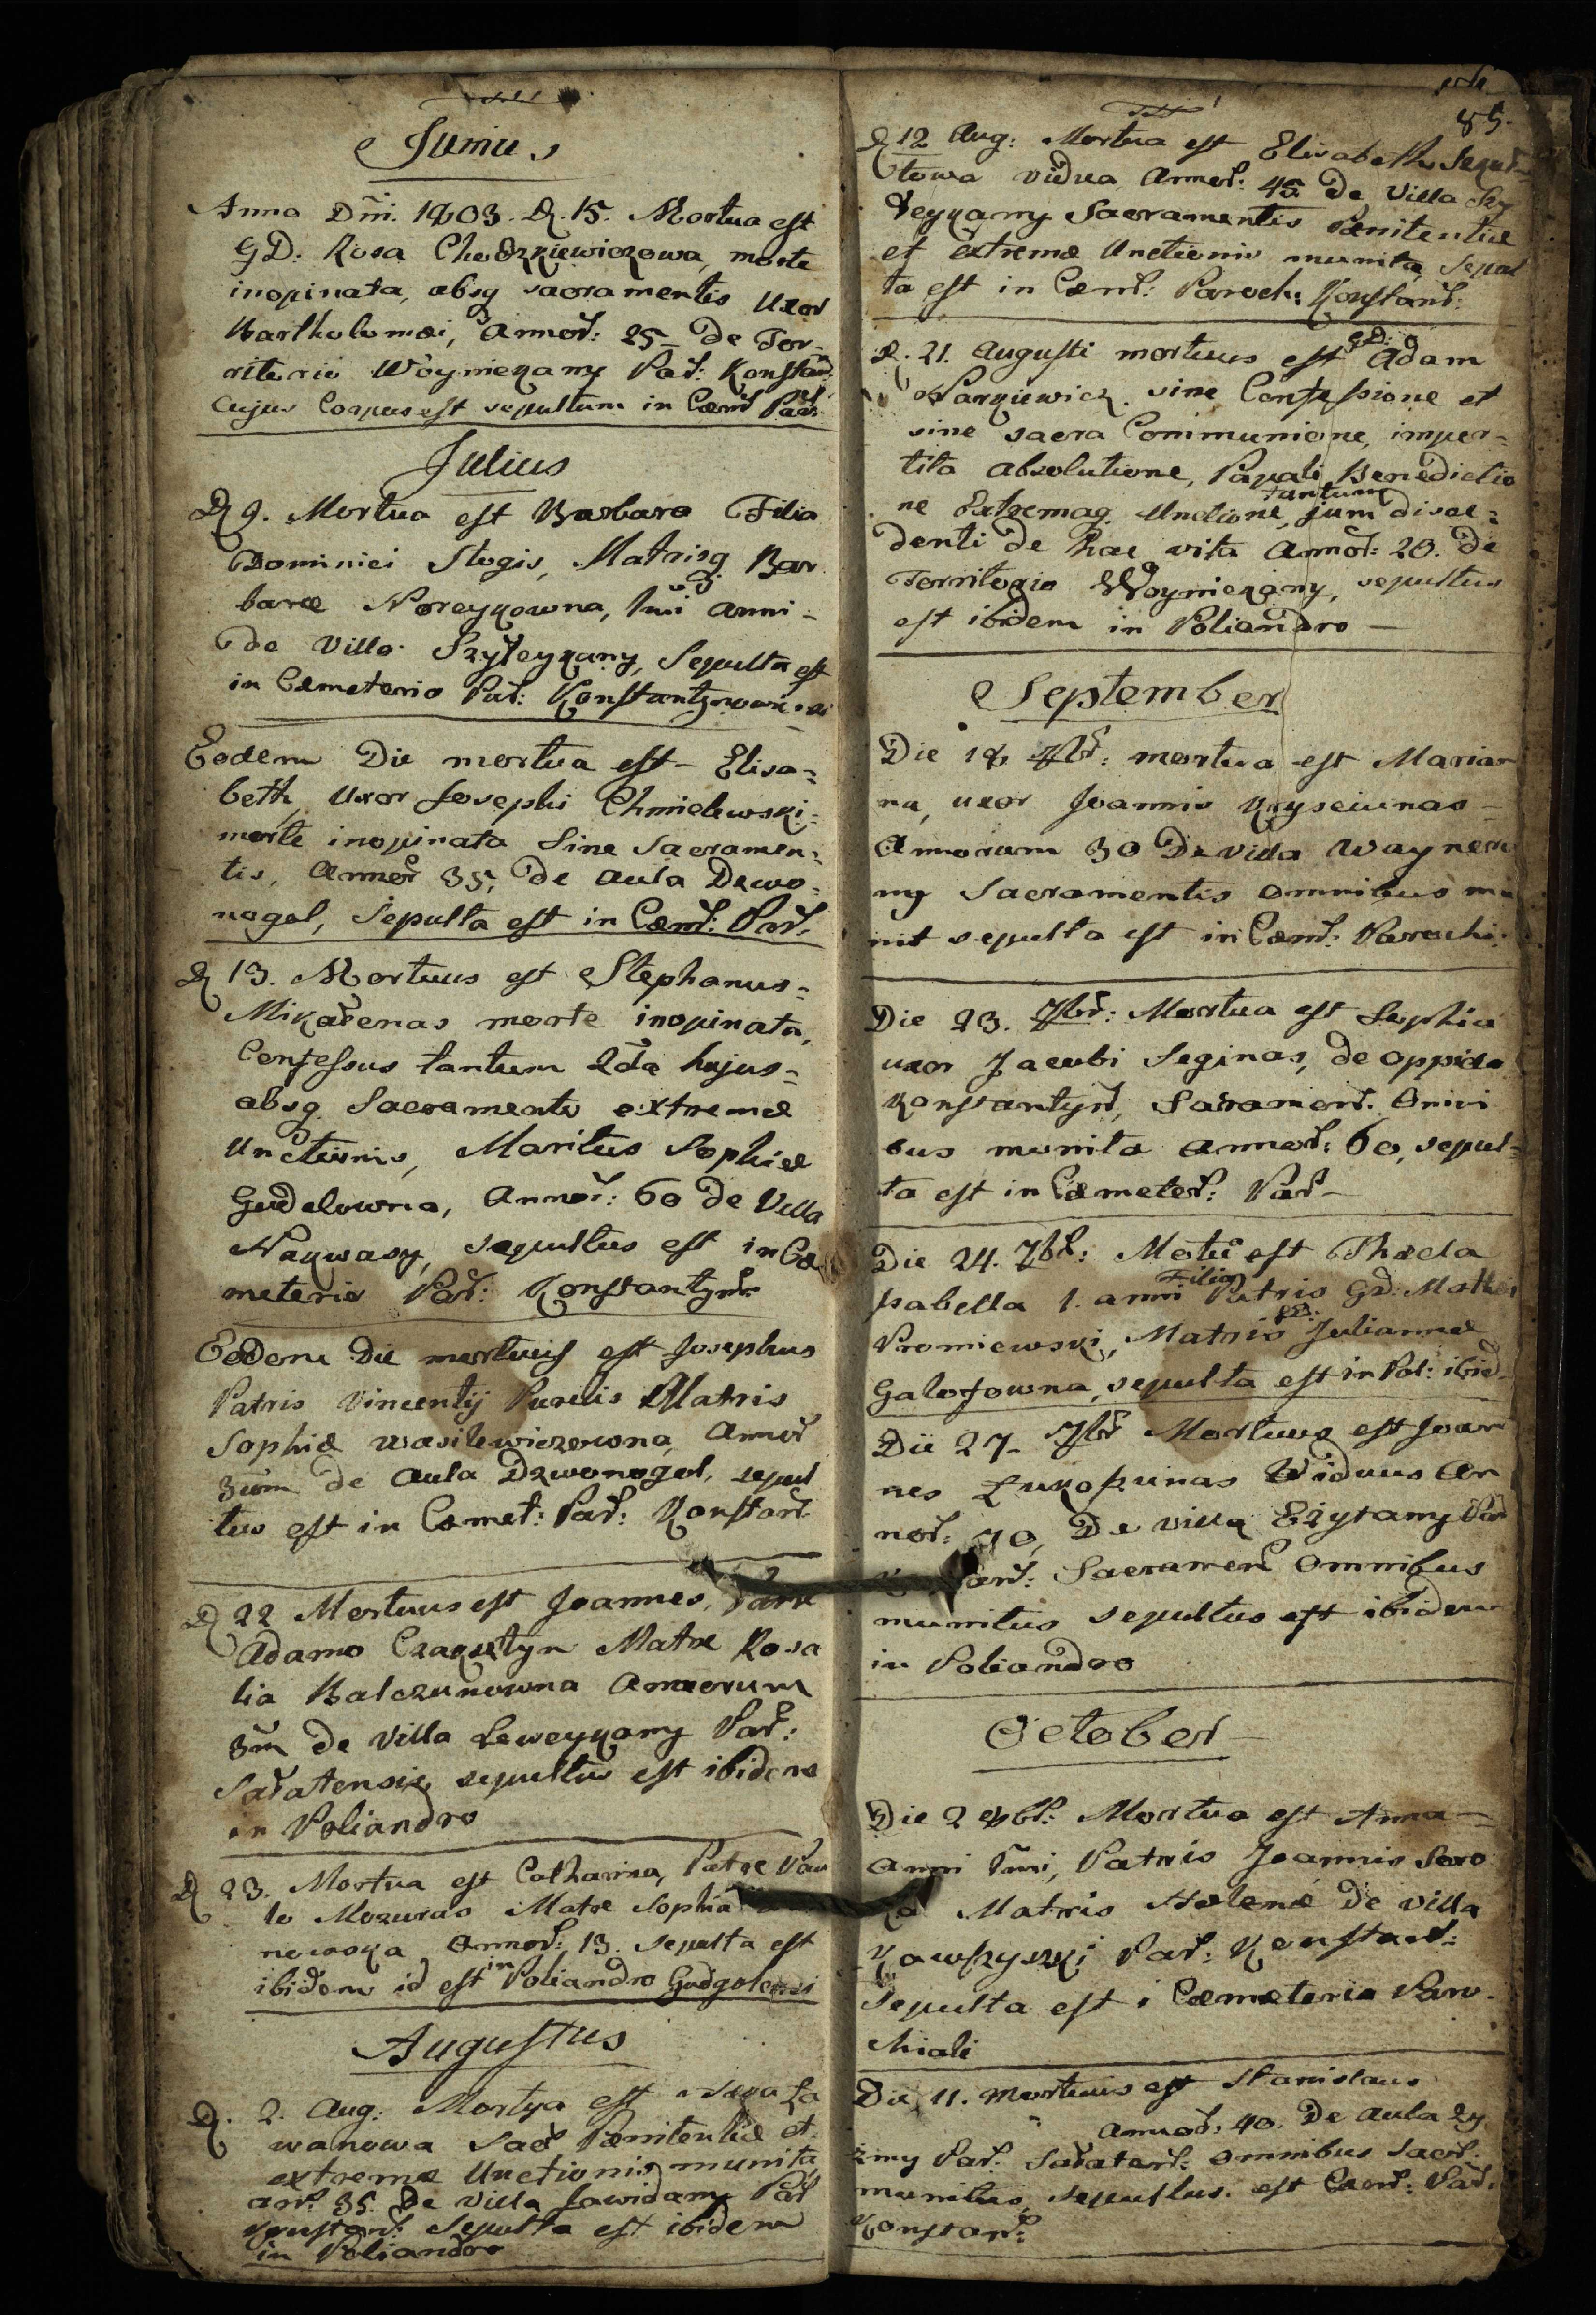 Junius
Anno Dni. 1803. D. 15. Mortua est
GD. Rosa Chodzkiewiczowa, morte
inopinata, absq sacramentis Uxor
Bartholomæi, Annor: 25- de Ter-
ritorio Woyniekany Par: Konstan:
Cujus Corpus est sepultum in Cæm Par.
Julius
D 9. Mortua est Barbara Filia
Dominici Stogis, Matrisq Bar
baræ Noreykowna, 1mi anni -
de Villa Szyleykany, Sepulta est
in Cæmeterio Par: Konstantynow
Eodem Die mortua est Elisa=
beth, Uxor Josephi Chmielewski=
morte inopinata Sine Sacramen=
tis, Annor 35, de Aula Dzwo=
nogol, Sepulta est in Cæm: Par.
D 13. Mortuus est Stephanus=
Mikałenas morte inopinata,
Confessus tantum 2da hujus=
absq. Sacramento extremæ
Unctionis, Maritus Sophiæ
Gudelowna, Annor: 60 de Villa
Naywasy, sepultus est in Cæ
meterio Par: Konstantyn
Eodem Die mortuus est Josephus
Patris Vincentij Purelis Matris
Sophiæ Wasilewiczowna, Annor
3um de Aula Dzwonogol, sepul
tus est in Cæmet: Par: Konstan
D 22 Mortuus est Joannes, Patre
Adamo Matre Rosa
lia Balczunowna Annorum
3m de Villa Leweykany Par:
Sałatensis, sepultus est ibidem
in Poliandro
D 23. Mortua est Catharina, Patre Pau
lo Mozuras Matre Sophia
nowska Annor: 13. Sepulta est
ibidem id est in Poliandro Gudgolensi
Augustus
D. 2. Aug: Mortua est
wanowa Sacr Pænitentiæ et
extremæ Unctionis munita
an: 35. De Villa Jawidany Par
Konstan: Sepulta est ibidem
in Poliandro
85.
D 12 Aug: Mortua est Elisabeth
towa vidua Annor: 45. De Villa Szy
leykany Sacramentis Pænitentiæ
et Extremæ Unctionis munita, Sepul
ta est in Cæm: Paroch: Konstan:
D. 21. Augusti mortuus est GD: Adam
Narkiewicz. sine Confessione et
sine sacra Communione, imper=
tita absolutione, Papali Benedictio
ne Extremaq. Unctione, tantum jam disce=
denti de hac vita Annor: 20. De
Territorio Woyniekany, sepultus
est ibidem in Poliandro -
September
Die 18 7br: mortua est Marian
na, uxor Joannis
Annorum 30 De Villa Wayneu
ny Sacramentis omnibus mu
nit sepulta est in Cæm: Parochi:
Die 23. 7br: Mortua est Sophia
uxor Jacobi Seginas, de oppido
Konstantyn, Sacramen. Omni
bus munita Annor: 60, sepul=
ta est in Cæmeter: Par-
Die 24. 7br: Mortu est Thæcla
Isabella 1. anni Filia Patris GD: Mathei
Promiewski, Matris GD. Juliannæ
Galofowna, sepulta est in Pol: ibid.
Die 27- 7br Mortuus est Joan
nes Lukoszunas Viduus An
nor: 70, De villa Ezytany Par
Sacramen Omnibus
munitus sepultus est ibidem
in Poliandro
October -
Die 2 8br. Mortua est Anna -
Anni 1mi, Patris Joannis
Matris Helenæ De Villa
Kawszyszki Par: Konstan:
Sepulta est i Cæmeterio Paro-
chiali
Die 11. Mortuus est Stanislaus
Annor: 40. De Aula Zy
zmy Par: Sałaten: omnibus Sacr:
munitus, sepultus. est Cæm: Par.
Konstan: